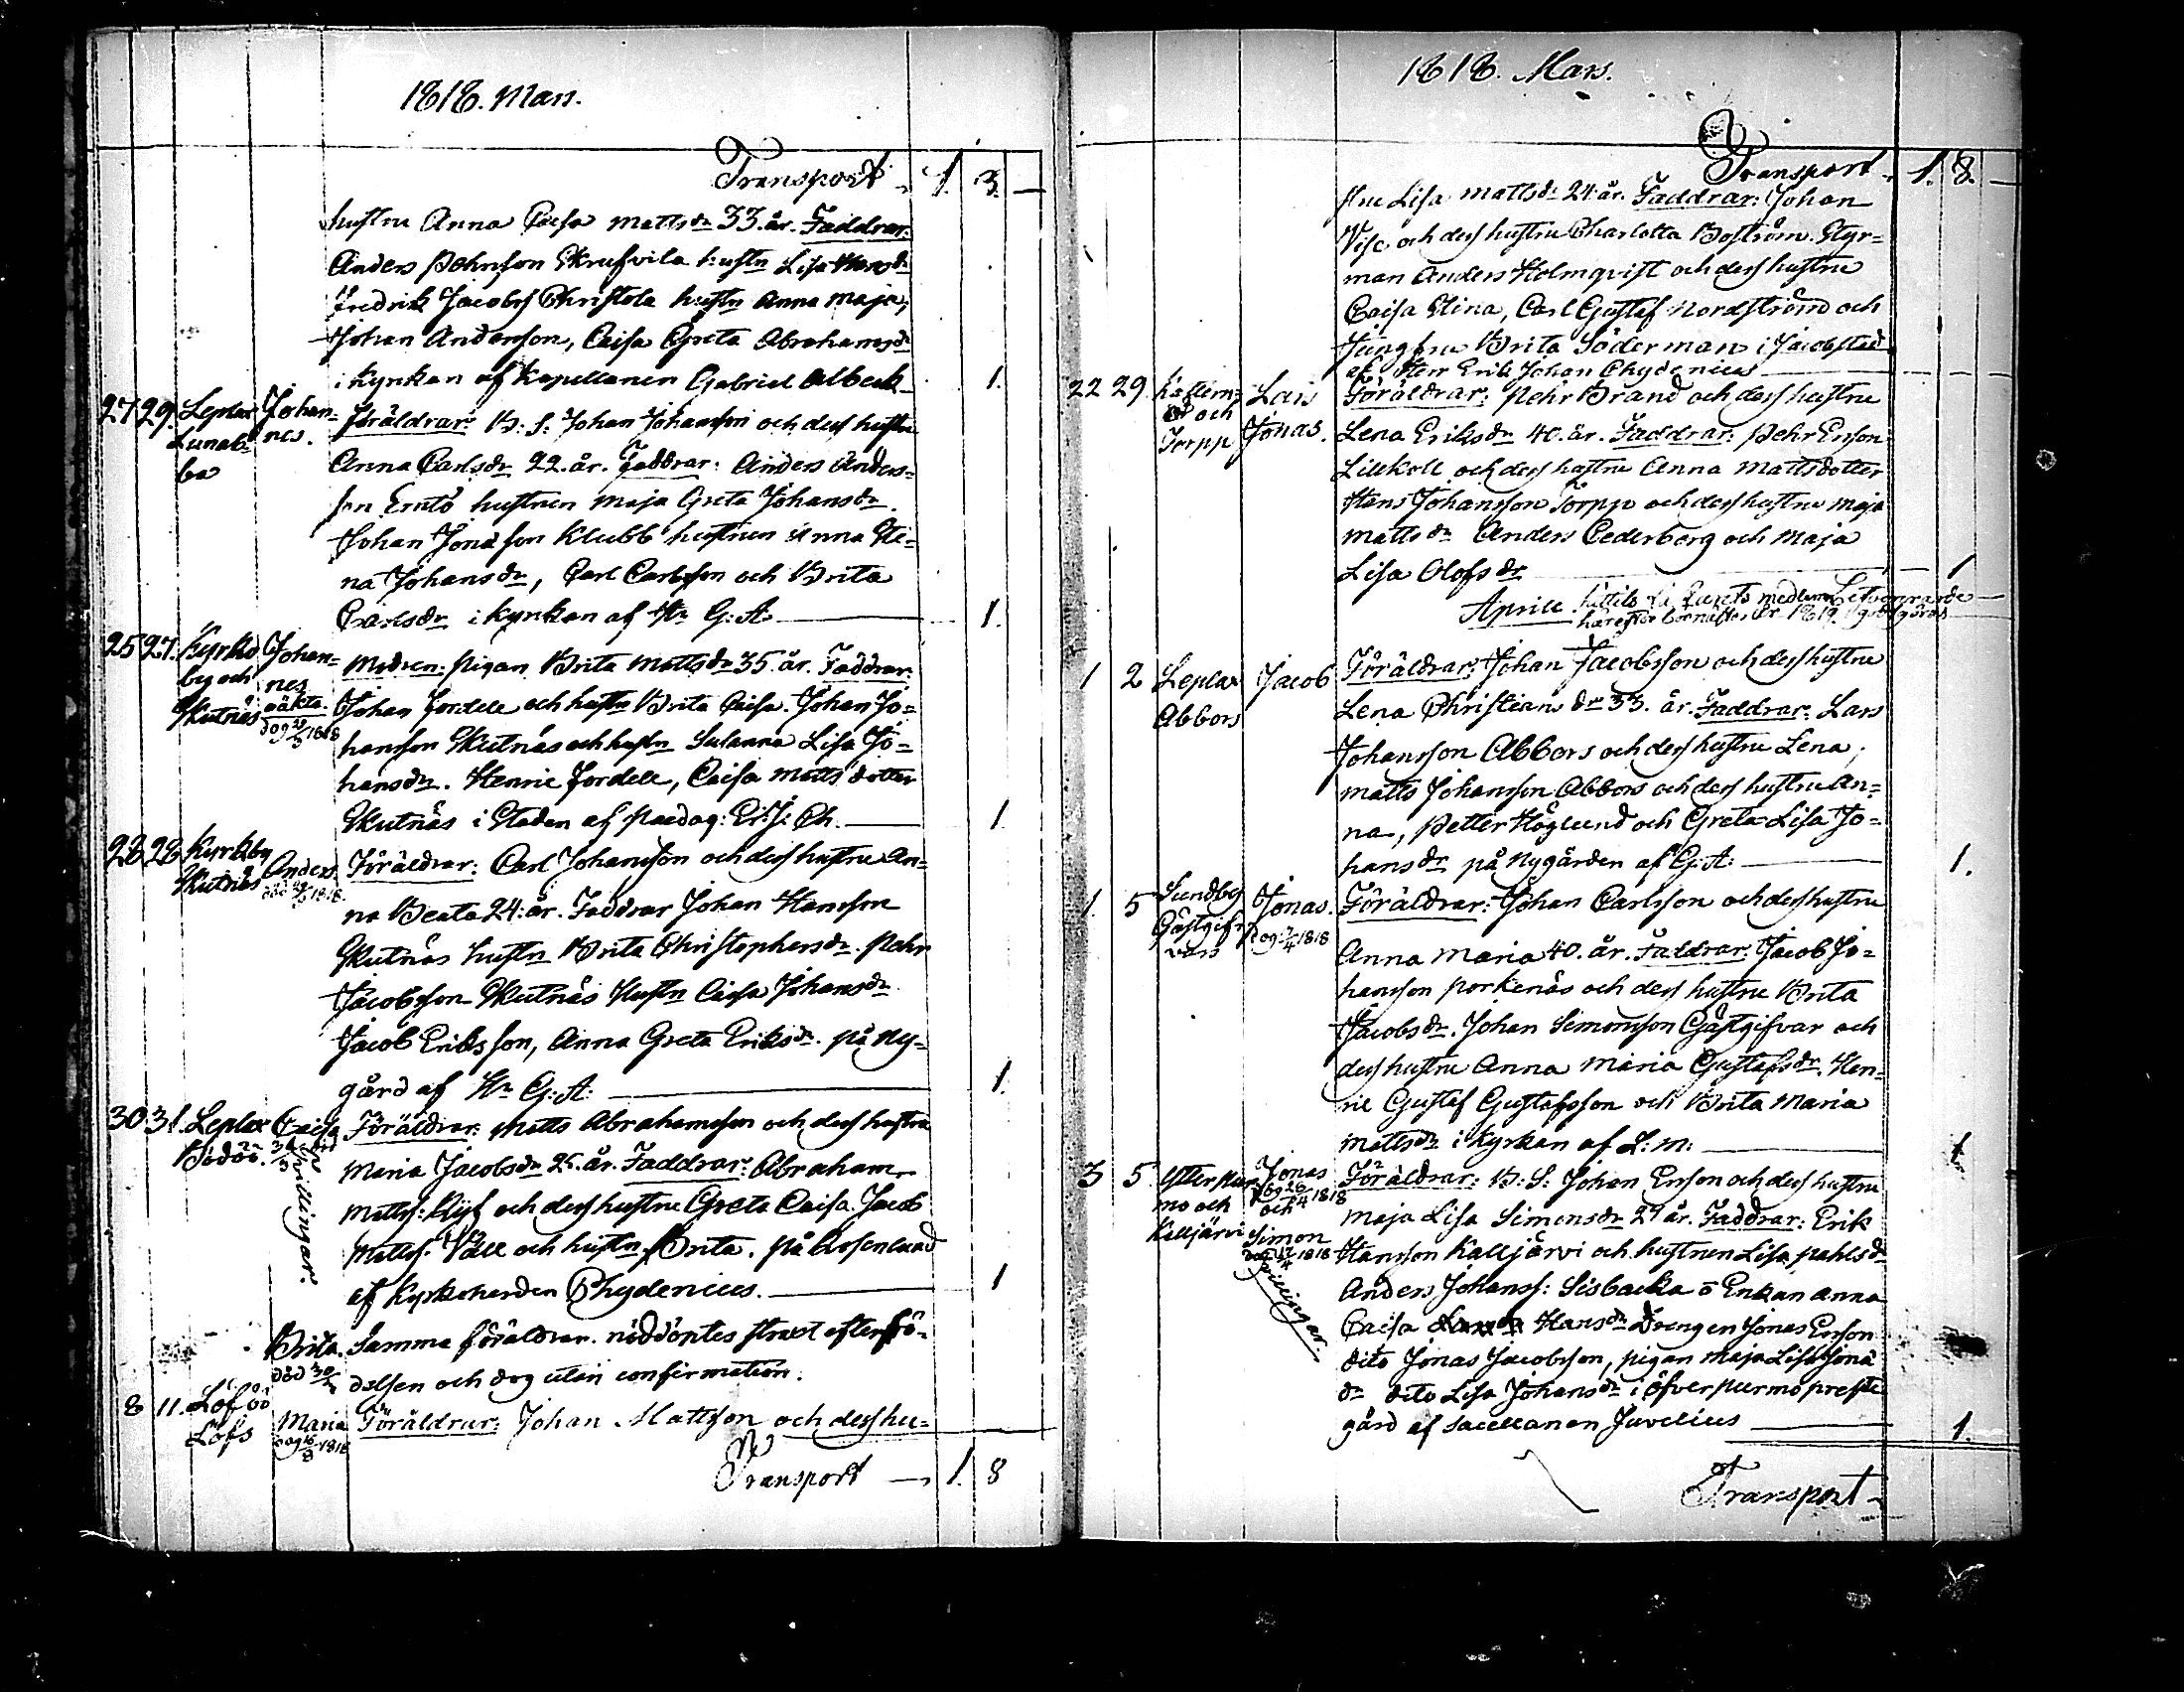 1818. Mars.
Transport 1. 3.
hustru Anna Caisa Mattsdr 33. år. Faddrar:
Anders Pehrsson Skrufvila hustn Lisa
Fredrik Jacobss Christola hustn Anna Maja;
Johan Andersson, Caisa Greta Abrahamsdr
i Kyrkan af Kapellanen Gabriel Albeck 1.
27 29. Leplax Lunabba Johannes. Föräldrar: B: S: Johan Johansson och dess hustru
Anna Carlsdr 22. år. Faddrar: Anders Anders=
son Erntö hustrun Maja Greta Johansdr.
Johan Jonasson Klubb hustrun Anna Ste=
na Johansdr, Carl Carlsson och Brita
Carlsdr i kyrkan af Hr G: A: 1.
25 27. Kyrkoby och Skutnäs Johannes oäkta. dog 29/3 1818 Modren: pigan Brita Mattsdr 35. år. Faddrar:
Johan Fordell och hustn Brita Caisa. Johan Jo=
hansson Skutnäs och hustn Susanna Lisa Jo=
hansdr. Henric Fordell, Caisa Matts dotter
Skutnäs i Staden af Paedag: Er: J: Ch. 1
28 28 Kyrkby Skutnäs Anders Föräldrar: Carl Johansson och dess hustru An=
na Beata 24: år. Faddrar Johan Hansson
Skutnäs hustn Brita Christophersdr. Pehr
Jacobsson Skutnäs Hustn Caisa Johansdr
Jacob Eriksson, Anna Greta Eriksdr. på Ny=
gård af Hr G: A: 1.
30 31. Leplax Bodöö. Caisa Tvillingar. Föräldrar: Matts Abrahamsson och dess hustru
Maria Jacobsdr 25. år. Faddrar: Abraham
Mattss: Kyf och dess hustru Greta Caisa. Jacob
Mattss. Väll och hustn Brita. på Rosenlund
af Kyrkoherden Chydenius. 1
Brita. död 30/3 Samma föräldrar. nöddöptes straxt efter fö=
delsen och dog utan confirmation.
8 11. Löföö Löfs Maria dog 16/8 1818 Föräldrar: Johan Mattsson och dess hu=
Transport 1. 8
1818. Mars.
Transport 1. 8.
stru Lisa Mattsdr 24 år. Faddrar: Johan
Vise och dess hustru Charlotta Boström. Styr=
man Anders Holmqvist och dess hustru
Caisa Stina, Carl Gustaf Nordström och
Jungfru Brita Söderman i Jacobstad
af Herr Erik Johan Chydenius
22 29. och Torpp Lars Jonas. Föräldrar: Pehr Brand och dess hustru
Lena Eriksdr 40. år. Faddrar: Pehr Ersson
Lillkoll och dess hustru Anna Mattsdotter
Hans Johansson Torpp och dess hustru Maja
Mattsdr Anders Cederberg och Maja
Lisa Olofsdr 1
Aprill
1 2 Leplax Abbors Jacob Föräldrar: Johan Jacobsson och dess hustru
Lena Christiansdr 33. år. Faddrar: Lars
Johansson Abbors och dess hustru Lena;
Matts Johansson Abbors och dess hustru An=
na, Petter Höglund och Greta Lisa Jo=
hansdr på Nygården af G: A: 1.
1. 5 Sundby Gästgifvars Jonas. dog 7/4 1818 Föräldrar: Johan Carlsson och dess hustru
Anna Maria 40. år. Faddrar: Jacob Jo=
hansson Porkenäs och dess hustru Brita
Jacobsdr. Johan Simonsson Gästgifvar och
dess hustru Anna Maria Gustafsdr. Hen=
ric Gustaf Gustafsson och Brita Maria
Mattsdr i Kyrkan af L: M: 1
3 5. Ytterpurmo och Kalljärvi Jonas dog 26/4 1818 och Simon 1818 Tvillingar. Föräldrar: B: S: Johan Ersson och dess hustru
Maja Lisa Simonsdr 27 år. Faddrar: Erik
Hansson Kalljärvi och hustrun Lisa Pahlsdr
Anders Johanss: Sisbacka o Enkan Anna
Caisa Hansdr Drengen Jonas Ersson
dito Jonas Jacobsson, pigan Maja Lisa Jona
dr dito Lisa Johansdr i Öfverpurmo preste
gård af Sacellanen Juvelius 1.
Transport